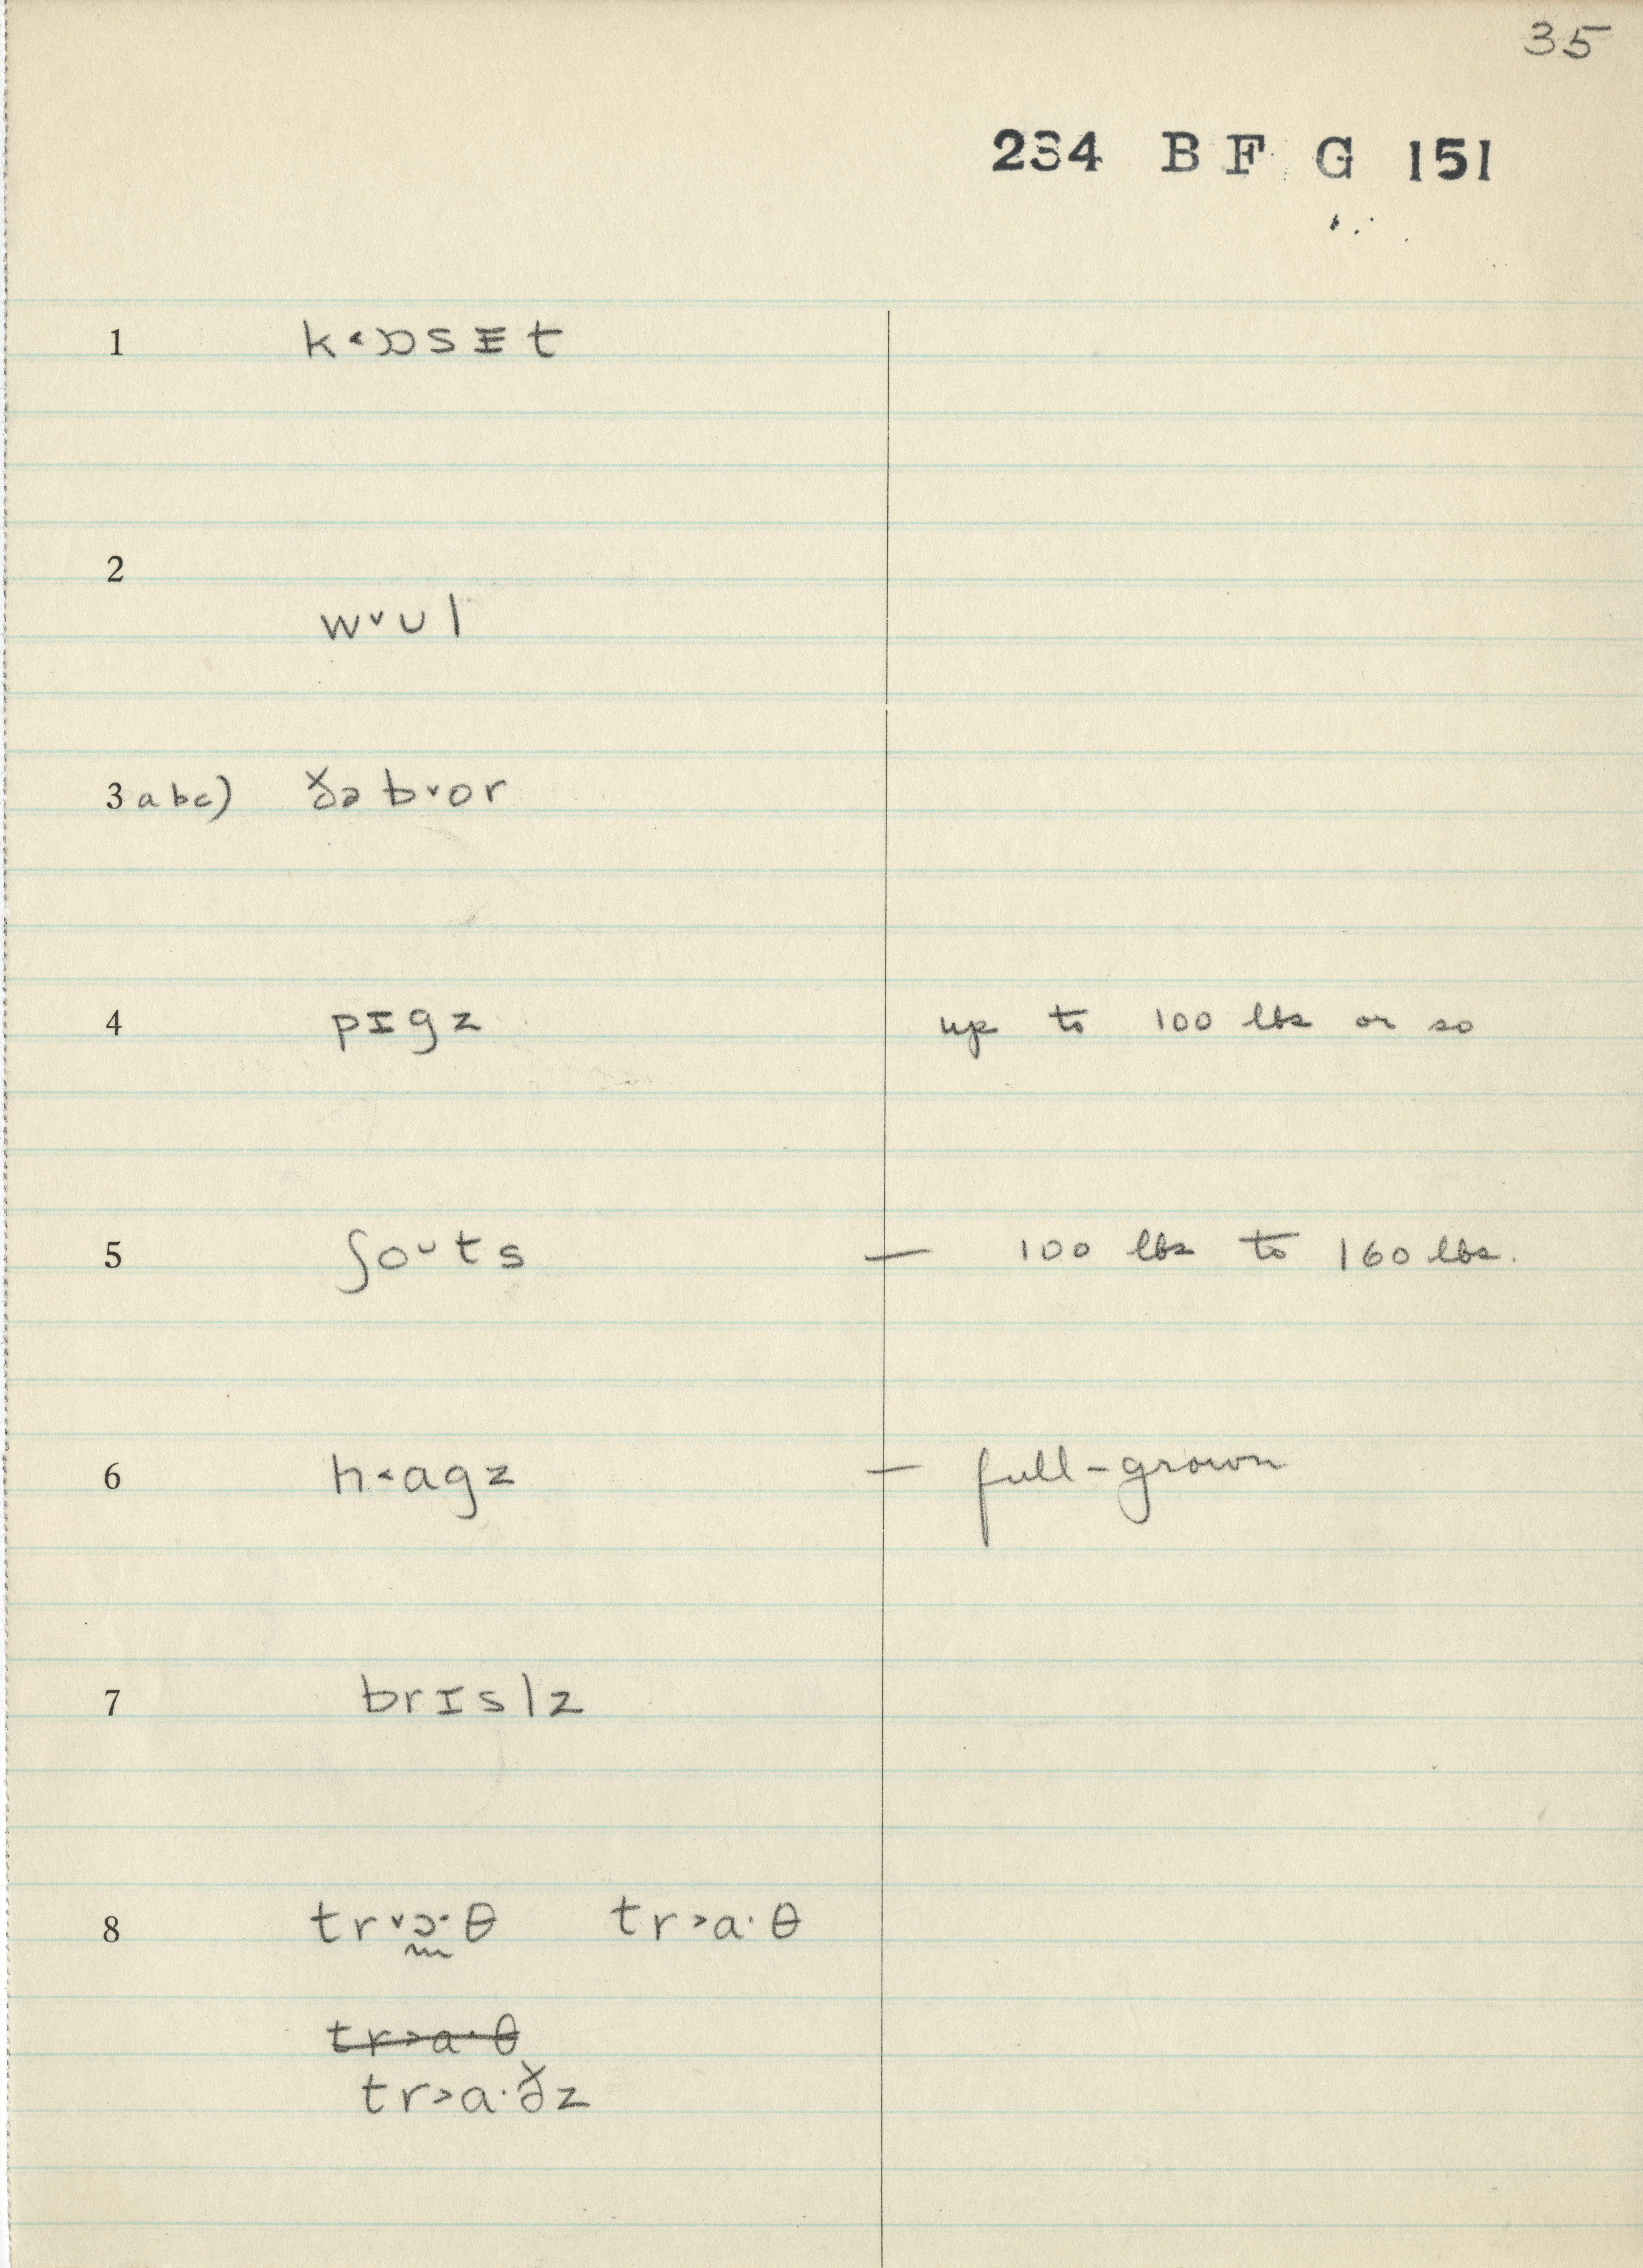 35
234 B F G 151
1 k˂ɒsɪ̵t
2
w˅ʊl
3 abc) ðə b˅or
4 pɪgz up to 100 lbs or so
5 ʃoᵕts — 100 lbs to 160 lbs.
6 h˂agz — full-grown
7 brɪslz
8 tr˅ɔ·θ tr˃a·θ
tr˃a·θ
tr˃a·ðz